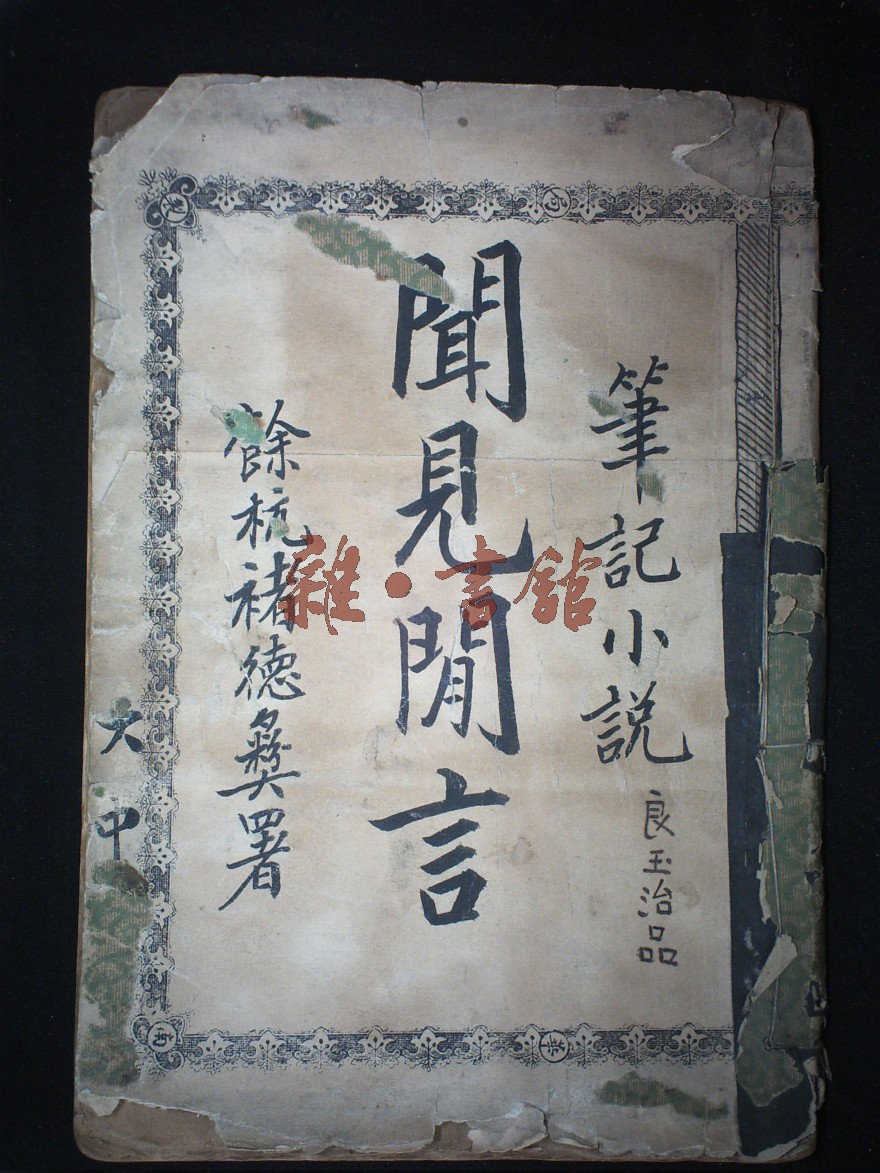 筆記小説
良玉治品
聞見閒言
餘杭褚德彝署
大中
雜·書館